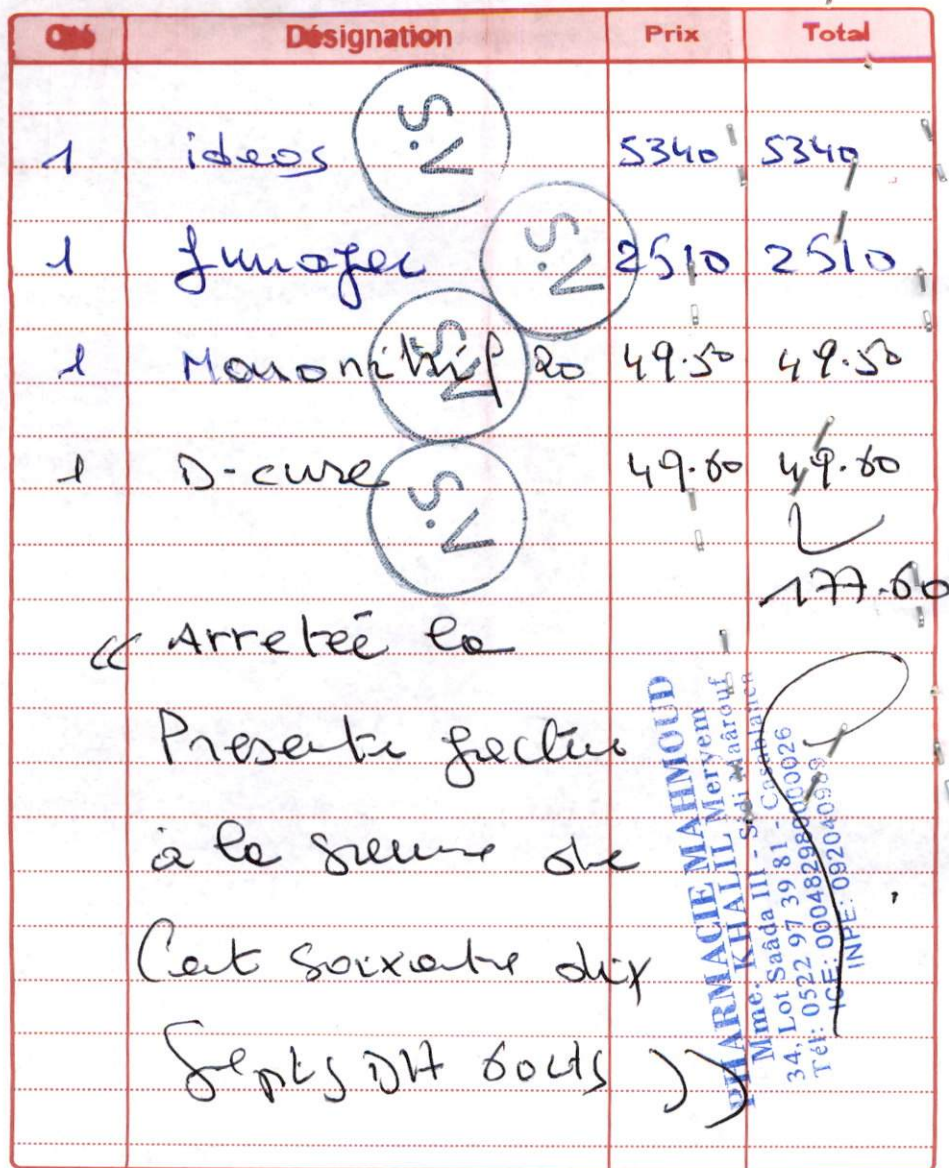 Qté Désignation Prix Total
S.V
1 ideos 5340 5340
S.V
1 fumafer 2510 2510
S.V
1 Mononitril 20 49.50 49.50
1 D-cure 49.60 49.60
S.V
177.60
« Arretée la
Presente facture
à la somme de
Cent soixante dix
septs DH 60cts »
PHARMACIE MAHMOUD
Mme. KHALIL Meryem
34, Lot Saâda III - Sidi Maârouf
Tél: 0522 97 39 81 - Casablanca
ICE: 000482988000026
INPE: 092040989